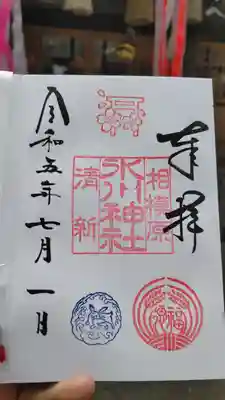 奉拝
相模原
氷川神社
清新
令和五年七月一日
福